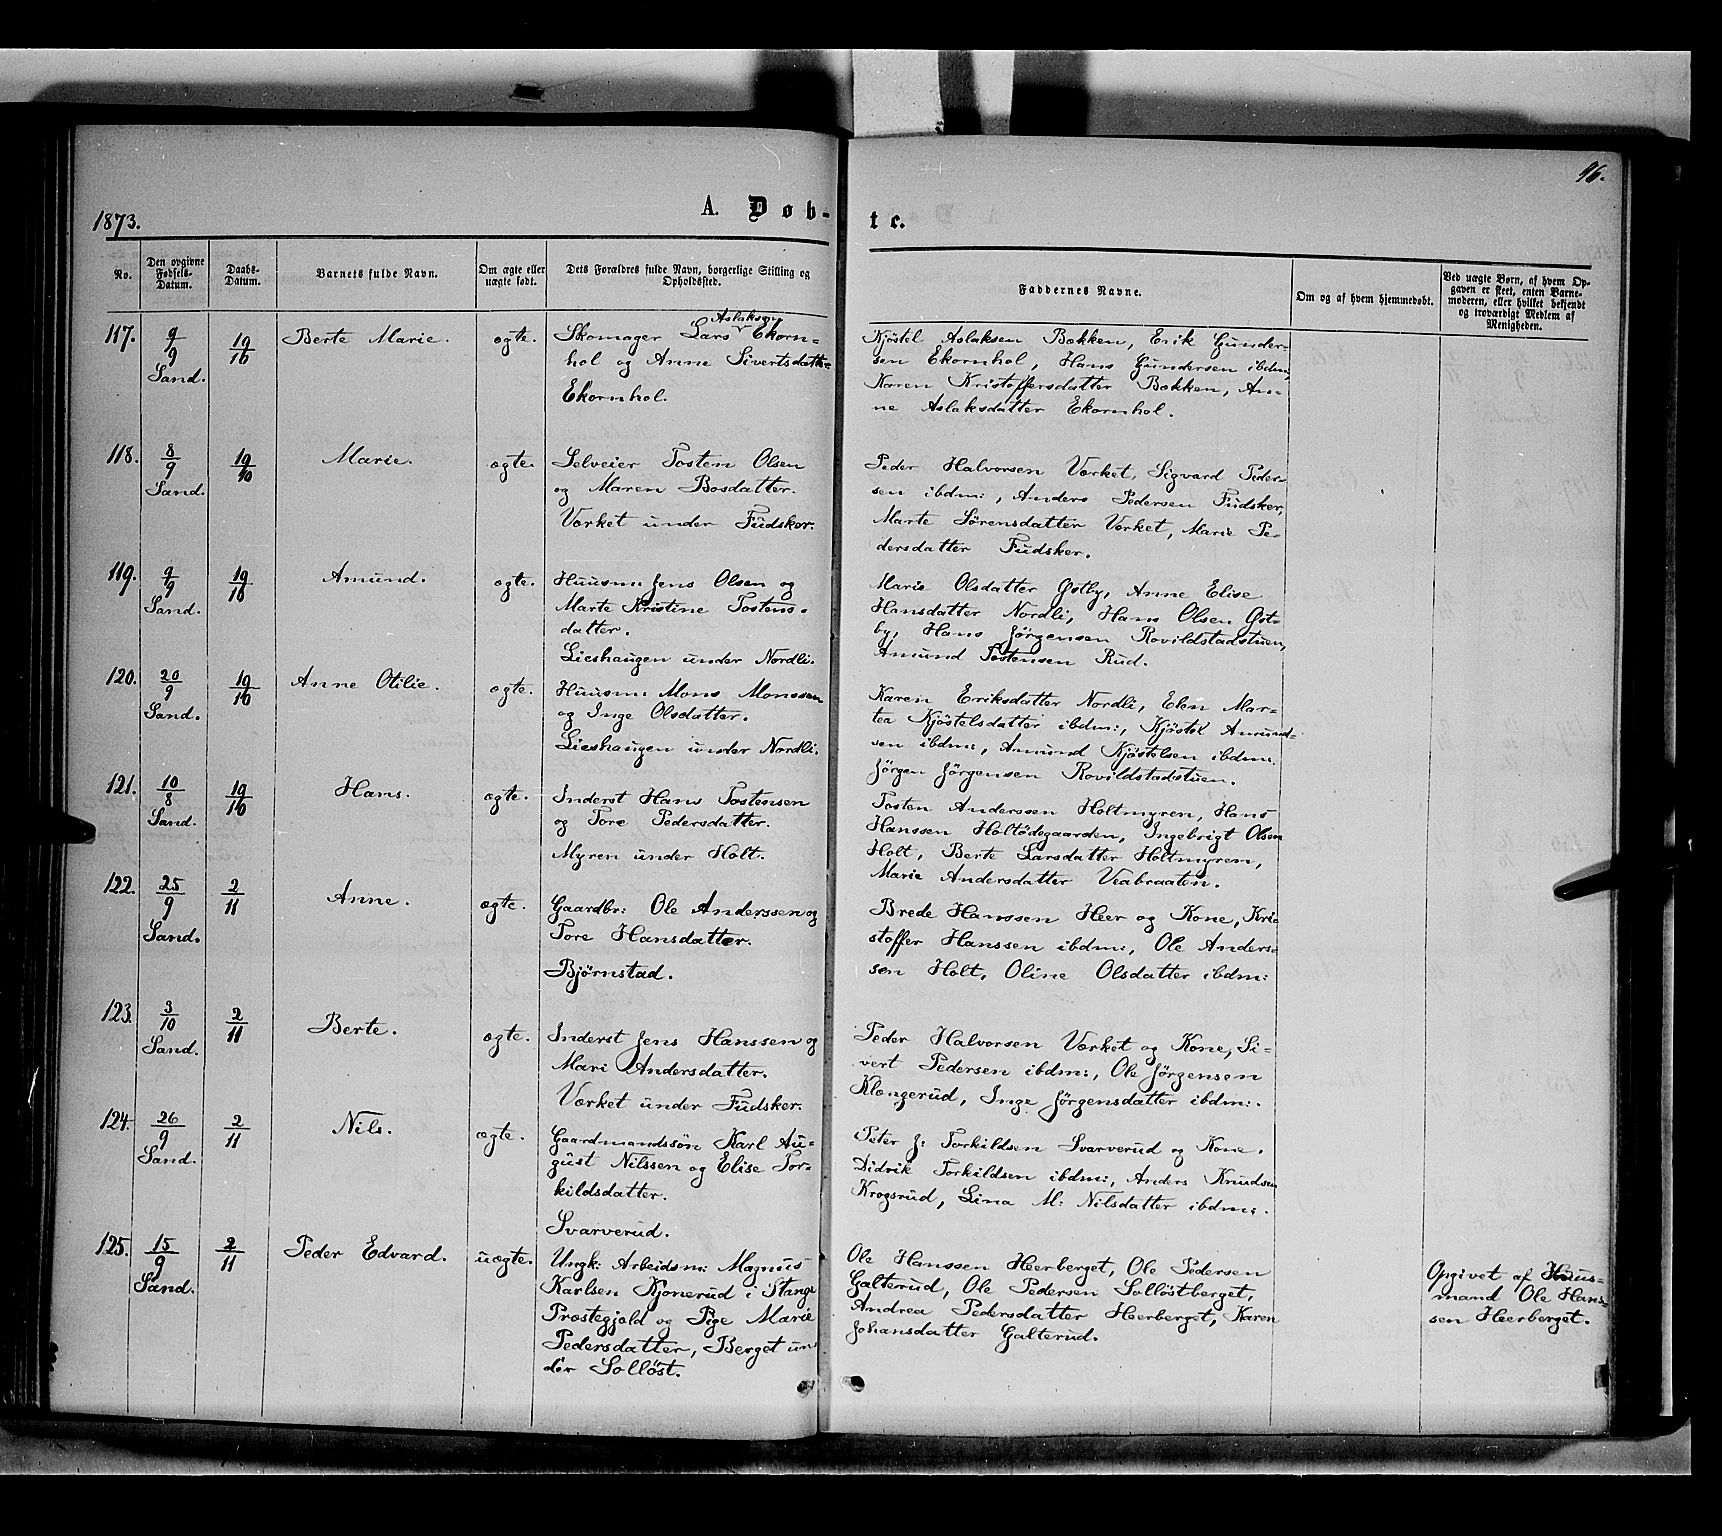 96.
1873.
A. Døb-
te.
No.
Den opgivne
Fødsels-
Datum.
Daabs-
Datum.
Barnets fulde Navn.
Om ægte eller
uægte født.
Dets Forældres fulde Navn, borgerlige Stilling og
Opholdssted.
Faddernes Navne.
Om og af hvem hjemmedøbt.
Ved uægte Børn, af hvem Op-
gaven er skeet, enten Barne-
moderen, eller hvilket bekjendt
og troværdigt Medlem af
Menigheden.
117.
9/9
Sand.
19/10
Berte Marie.
ægte.
Aslaksen
Skomager Lars Ekorn-
hol og Anne Sivertsdatter
Ekornhol.
Kjöstel Aslaksen Bakken, Erik Gunder-
sen Ekornhol, Hans Gundersen ibdm:
Karen Kristoffersdatter Bakken, An-
ne Aslaksdatter Ekornhol.
118.
8/9
Sand.
19/10
Marie.
ægte.
Selveier Tosten Olsen
og Maren Bosdatter.
Værket under Fudsker.
Peder Halvorsen Værket, Sigvard Peder-
sen ibdm:, Anders Pedersen Fudsker,
Marte Sörensdatter Værket, Marie Pe-
dersdatter Fudsker.
119.
9/9
Sand.
19/10
Amund.
ægte.
Huusm: Jens Olsen og
Marte Kristine Tostens-
datter.
Lieshaugen under Nordli.
Marie Olsdatter Østby, Anne Elise
Hansdatter Nordli, Hans Olsen Øst-
by, Hans Jörgensen Rovildstadstuen,
Amund Tostensen Rud.
120.
20/9
Sand.
19/10
Anne Otilie.
ægte.
Huusm: Mons Monssen
og Inge Olsdatter.
Lieshaugen under Nordli.
Karen Eriksdatter Nordli, Elen Mar-
tea Kjöstelsdatter ibdm:, Kjöstel Amund-
sen ibdm:, Amund Kjöstelsen ibdm:
Jörgen Jörgensen Rovildstadstuen.
121.
10/8
Sand.
19/10
Hans.
ægte.
Inderst Hans Tostensen
og Tore Pedersdatter.
Myren under Holt.
Tosten Anderssen Holtmyren, Hans
Hanssen Holtödegaarden, Ingebrigt Olsen
Holt, Berte Larsdatter Holtmyren,
Marie Andersdatter Veabraaten.
122.
25/9
Sand.
2/11
Anne.
ægte.
Gaardbr: Ole Anderssen og
Tore Hansdatter.
Bjørnstad.
Brede Hanssen Heer og Kone, Kri-
stoffer Hanssen ibdm:, Ole Anders-
sen Holt, Oline Olsdatter ibdm:
123.
3/10
Sand.
2/11
Berte.
ægte.
Inderst Jens Hanssen og
Mari Andersdatter.
Værket under Fudsker.
Peder Halvorsen Værket og Kone, Si-
vert Pedersen ibdm:, Ole Jörgensen
Klængerud, Inge Jörgensdatter ibdm:.
124.
26/9
Sand.
2/11
Nils.
ægte.
Gaardmandssön Karl Au-
gust Nilssen og Elise Tor-
kildsdatter.
Svarverud.
Peter J: Torkildsen Svarverud og Kone,
Didrik Torkildsen ibdm:, Anders Knudsen
Krogsrud, Lina M: Nilsdatter ibdm:.
125.
15/9
Sand.
2/11
Peder Edvard.
uægte.
Ungk: Arbeidsm: Magnus
Karlsen Kjonerud i Stange
Præstegjeld og Pige Marie
Pedersdatter, Berget un-
der Solløst.
Ole Hanssen Heerberget, Ole Pedersen
Galterud, Ole Pedersen Solløstberget,
Andrea Pedersdatter Heerberget, Karen
Johansdatter Galterud.
Opgivet af Huus-
mand Ole Hans-
sen Heerberget.